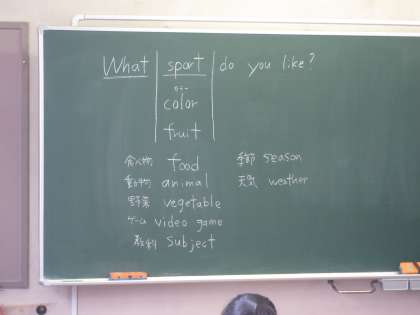 What sport do you like?
color
fruit
食べ物 food 季節 season
動物 animal 天気 weather
野菜 vegetable
ゲーム video game
教科 subject